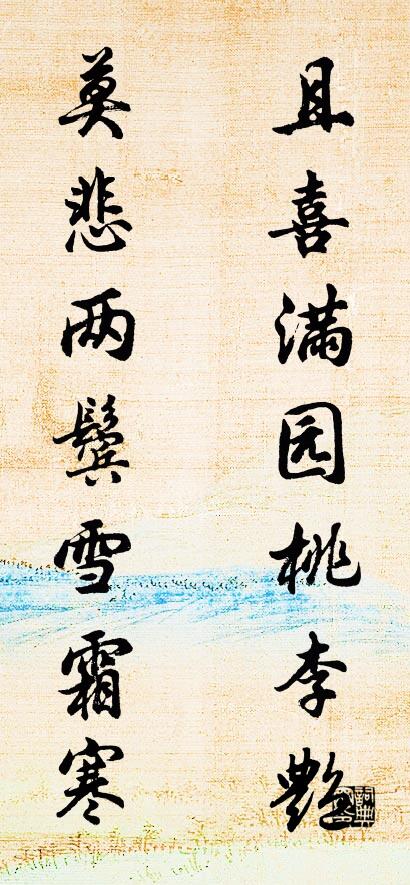 且喜满园桃李艳
莫悲两鬓雪霜寒